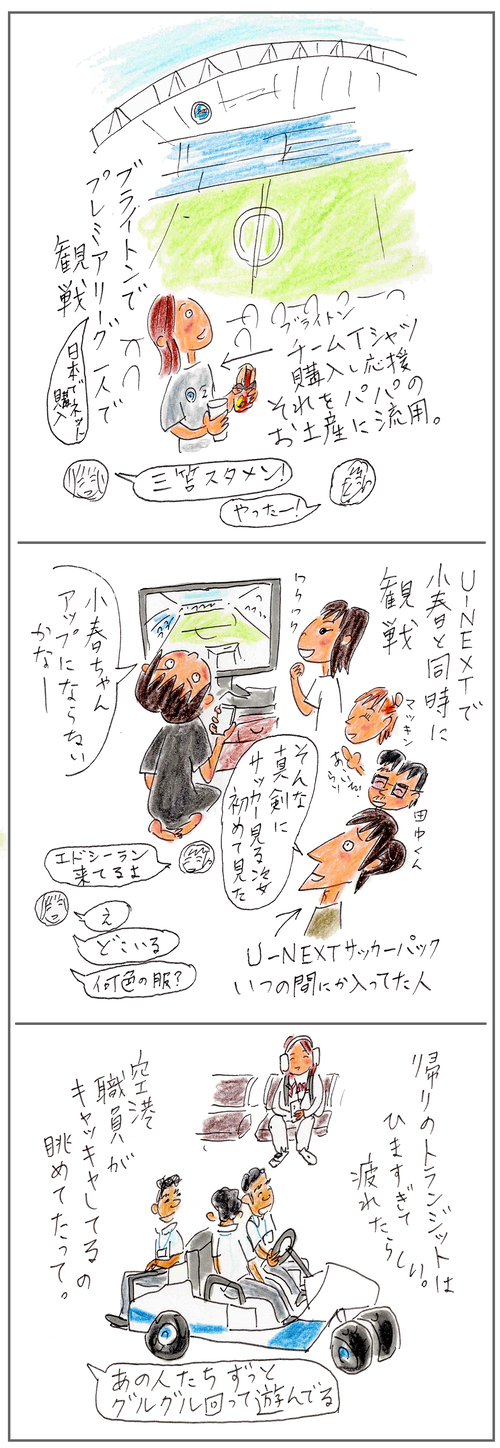 ブライトンで
プレミアリーグ一人で
観戦
日本でネット
購入
ブライトン
チームTシャツ
購入し応援
それをパパの
お土産に流用。
三笘スタメン!
やったー!
U-NEXTで
小春と同時に
観戦
わらわら
小春ちゃん
アップにならない
かなー
マッキン
田中くん
そんな
真剣に
サッカー見る次女
初めて見た
エドシーラン
来てるよ
え
どこいる
何色の服?
U-NEXTサッカーパック
いつの間にか入ってた人
帰りのトランジットは
ひますぎて
疲れたらしい。
空港
職員が
キャッキャしてるの
眺めてたって。
あの人たちずっと
グルグル回って遊んでる